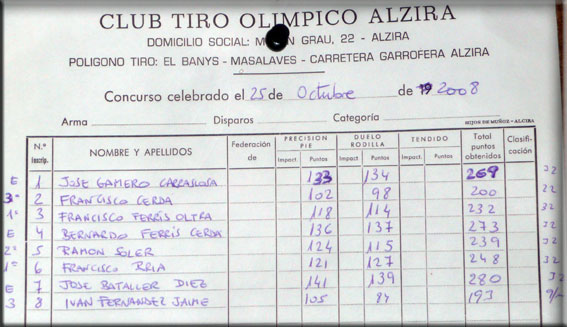 CLUB TIRO OLIMPICO ALZIRA
DOMICILIO SOCIAL: GRAU, 22 - ALZIRA
POLIGONO TIRO: EL BANYS - MASALAVES - CARRETERA GARROFERA ALZIRA
Concurso celebrado el 25 de Octubre de 2008
Arma Disparos Categoría
HIJOS DE MUÑOZ - ALCIRA
N.º Inscrip. NOMBRE Y APELLIDOS Federación de PRECISION PIE DUELO RODILLA TENDIDO Total puntos obtenidos Clasificación
Impact. Puntos Impact. Puntos Impact. Puntos
E 1 JOSE GAMERO CARRASCOSA 133 134 269 32
3º 2 FRANCISCO CERDA 102 98 200 32
1º 3 FRANCISCO FERRÍS OLTRA 118 114 232 32
E 4 BERNARDO FERRÍS CERDA 136 137 273 32
2º 5 RAMON SOLER 124 115 239 32
1º 6 FRANCISCO 121 127 248 32
E 7 JOSE BATALLER DIEZ 141 139 280 32
3 8 IVAN FERNANDEZ JAIME 105 193